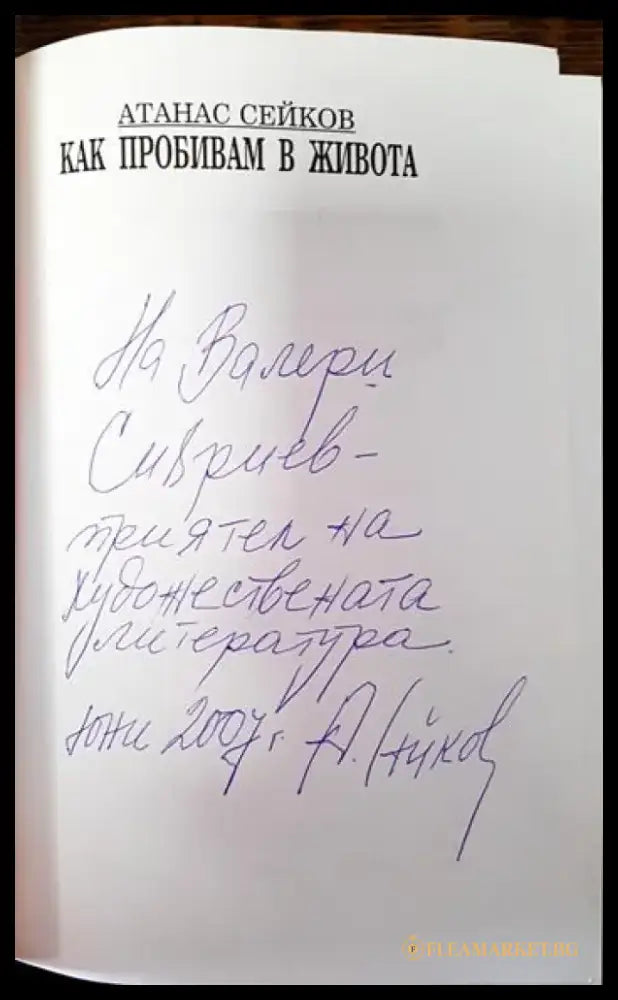 АТАНАС СЕЙКОВ
КАК ПРОБИВАМ В ЖИВОТА
На Валери
Сивриев -
приятел на
художествената
литература.
юни 2007 г. А. Сейков
FLEAMARKET.BG